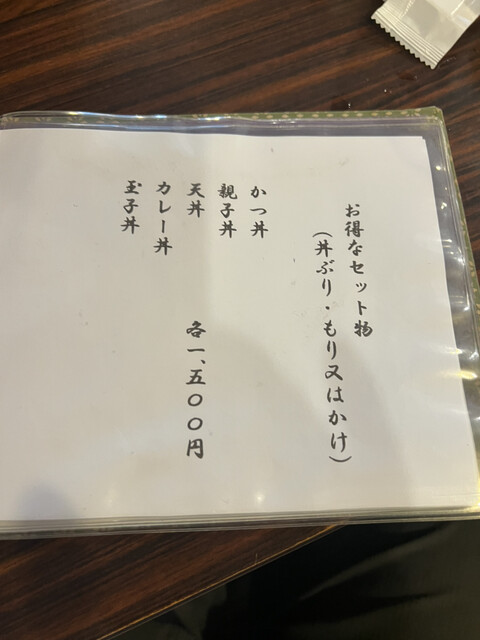 お得なセット物
(丼ぶり・もり又はかけ)
かつ丼
親子丼
天丼
カレー丼
玉子丼
各一、五〇〇円